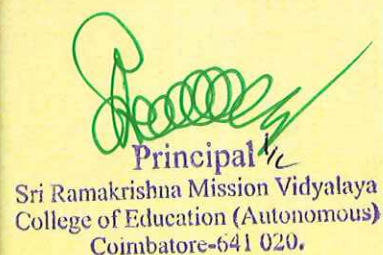 Principal I/C
Sri Ramakrishna Mission Vidyalaya
College of Education (Autonomous)
Coimbatore-641 020.